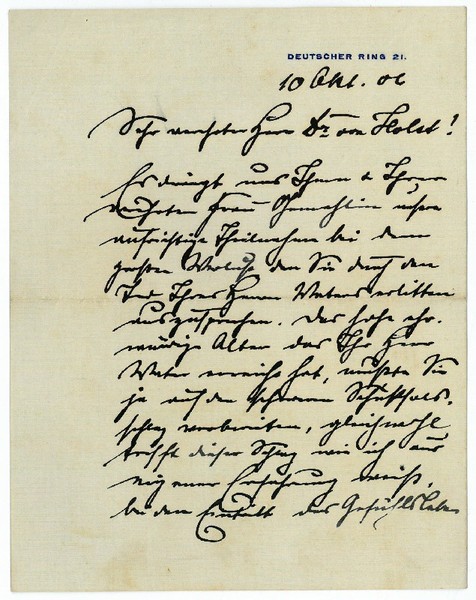 DEUTSCHER RING 21.
10 Okt. 06
Sehr verehrter Herr Dr. von Holst!
Es drängt uns Ihnen & Ihrer
verehrten Frau Gemahlin unsere
aufrichtige Theilnahme bei dem
großen Verluste den Sie durch den
Tod Ihres Herrn Vaters erlitten
auszusprechen. Das hohe ehr-
würdige Alter das Ihr Herr
Vater erreicht hat, mußte Sie
ja auf den schweren Schicksals-
schlag vorbereiten, gleichwohl
trifft dieser Schlag wie ich aus
eigener Erfahrung weiß,
bei dem Eintritt das Gefühlsleben